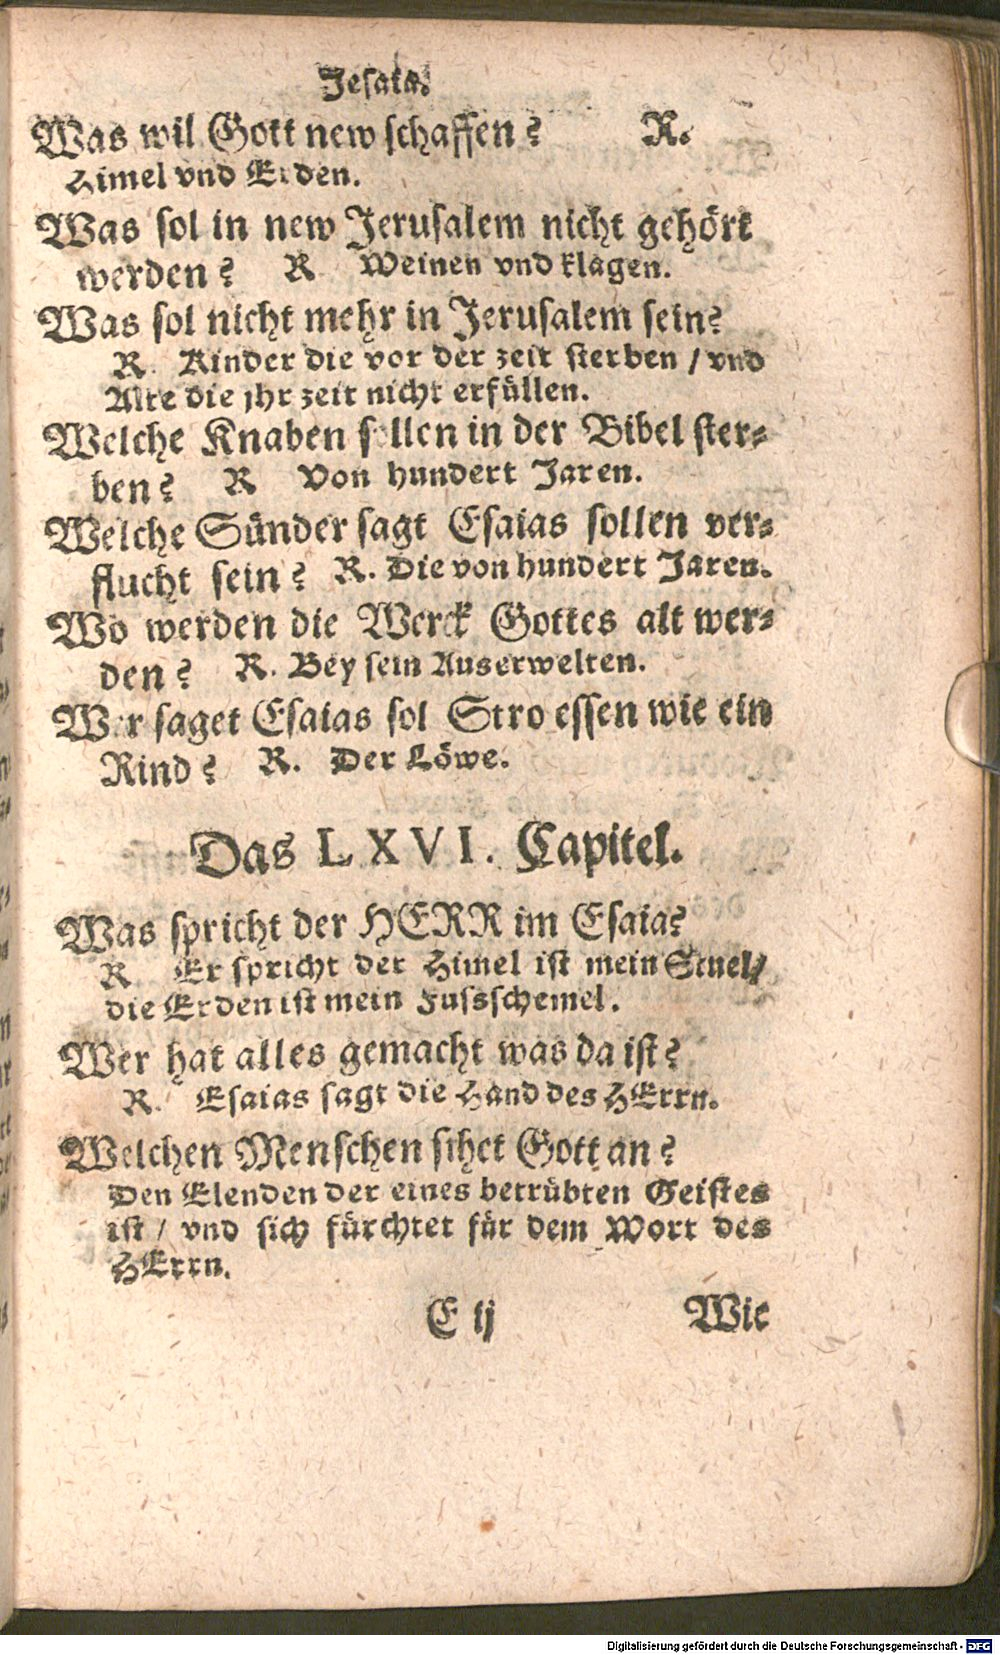 Jesaia.
Was wil Gott new schaffen? R.
Himel vnd Erden.
Was sol in new Jerusalem nicht gehört
werden? R Weinen vnd klagen.
Was sol nicht mehr in Jerusalem sein?
R. Kinder die vor der zeit sterben / vnd
Alte die jhr zeit nicht erfüllen.
Welche Knaben sollen in der Bibel ster⸗
ben? R Von hundert Jaren.
Welche Sünder sagt Esaias sollen ver⸗
flucht sein? R. Die von hundert Jaren.
Wo werden die Werck Gottes alt wer⸗
den? R. Bey sein Auserwelten.
Wer saget Esaias sol Stro essen wie ein
Rind? R. Der Löwe.
Das LXVI. Capitel.
Was spricht der HERR im Esaia?
R Er spricht der Himel ist mein Stuel /
die Erden ist mein Fussschemel.
Wer hat alles gemacht was da ist?
R. Esaias sagt die Hand des HErrn.
Welchen Menschen sihet Gott an?
Den Elenden der eines betrübten Geistes
ist / vnd sich fürchtet für dem Wort des
HErrn.
E ij Wie
Digitalisierung gefördert durch die Deutsche Forschungsgemeinschaft - DFG